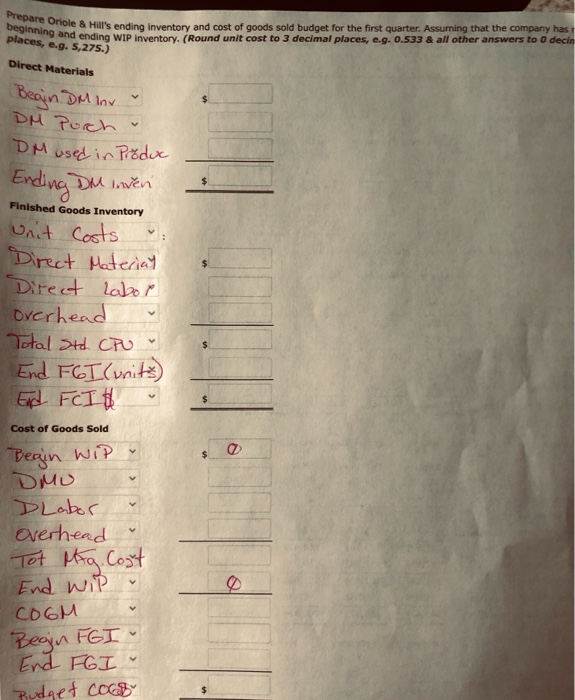 Prepare Oriole & Hill's ending inventory and cost of goods sold budget for the first quarter. Assuming that the company has
beginning and ending WIP inventory. (Round unit cost to 3 decimal places, e.g. 0.533 & all other answers to 0
places, e.g. 5,275.)
Direct Materials
Begin DM Inv $
DM Purch
DM used in Produc
Ending DM Inven $
Finished Goods Inventory
Unit Costs :
Direct Material $
Direct Labor
Overhead
Total Std CPU $
End FGI (units)
End FGI $ $
Cost of Goods Sold
Begin WIP $ 0
DMU
DLabor
Overhead
Tot Mfg. Cost
End WIP 0
COGM
Begin FGI
End FGI
Budget COGS $